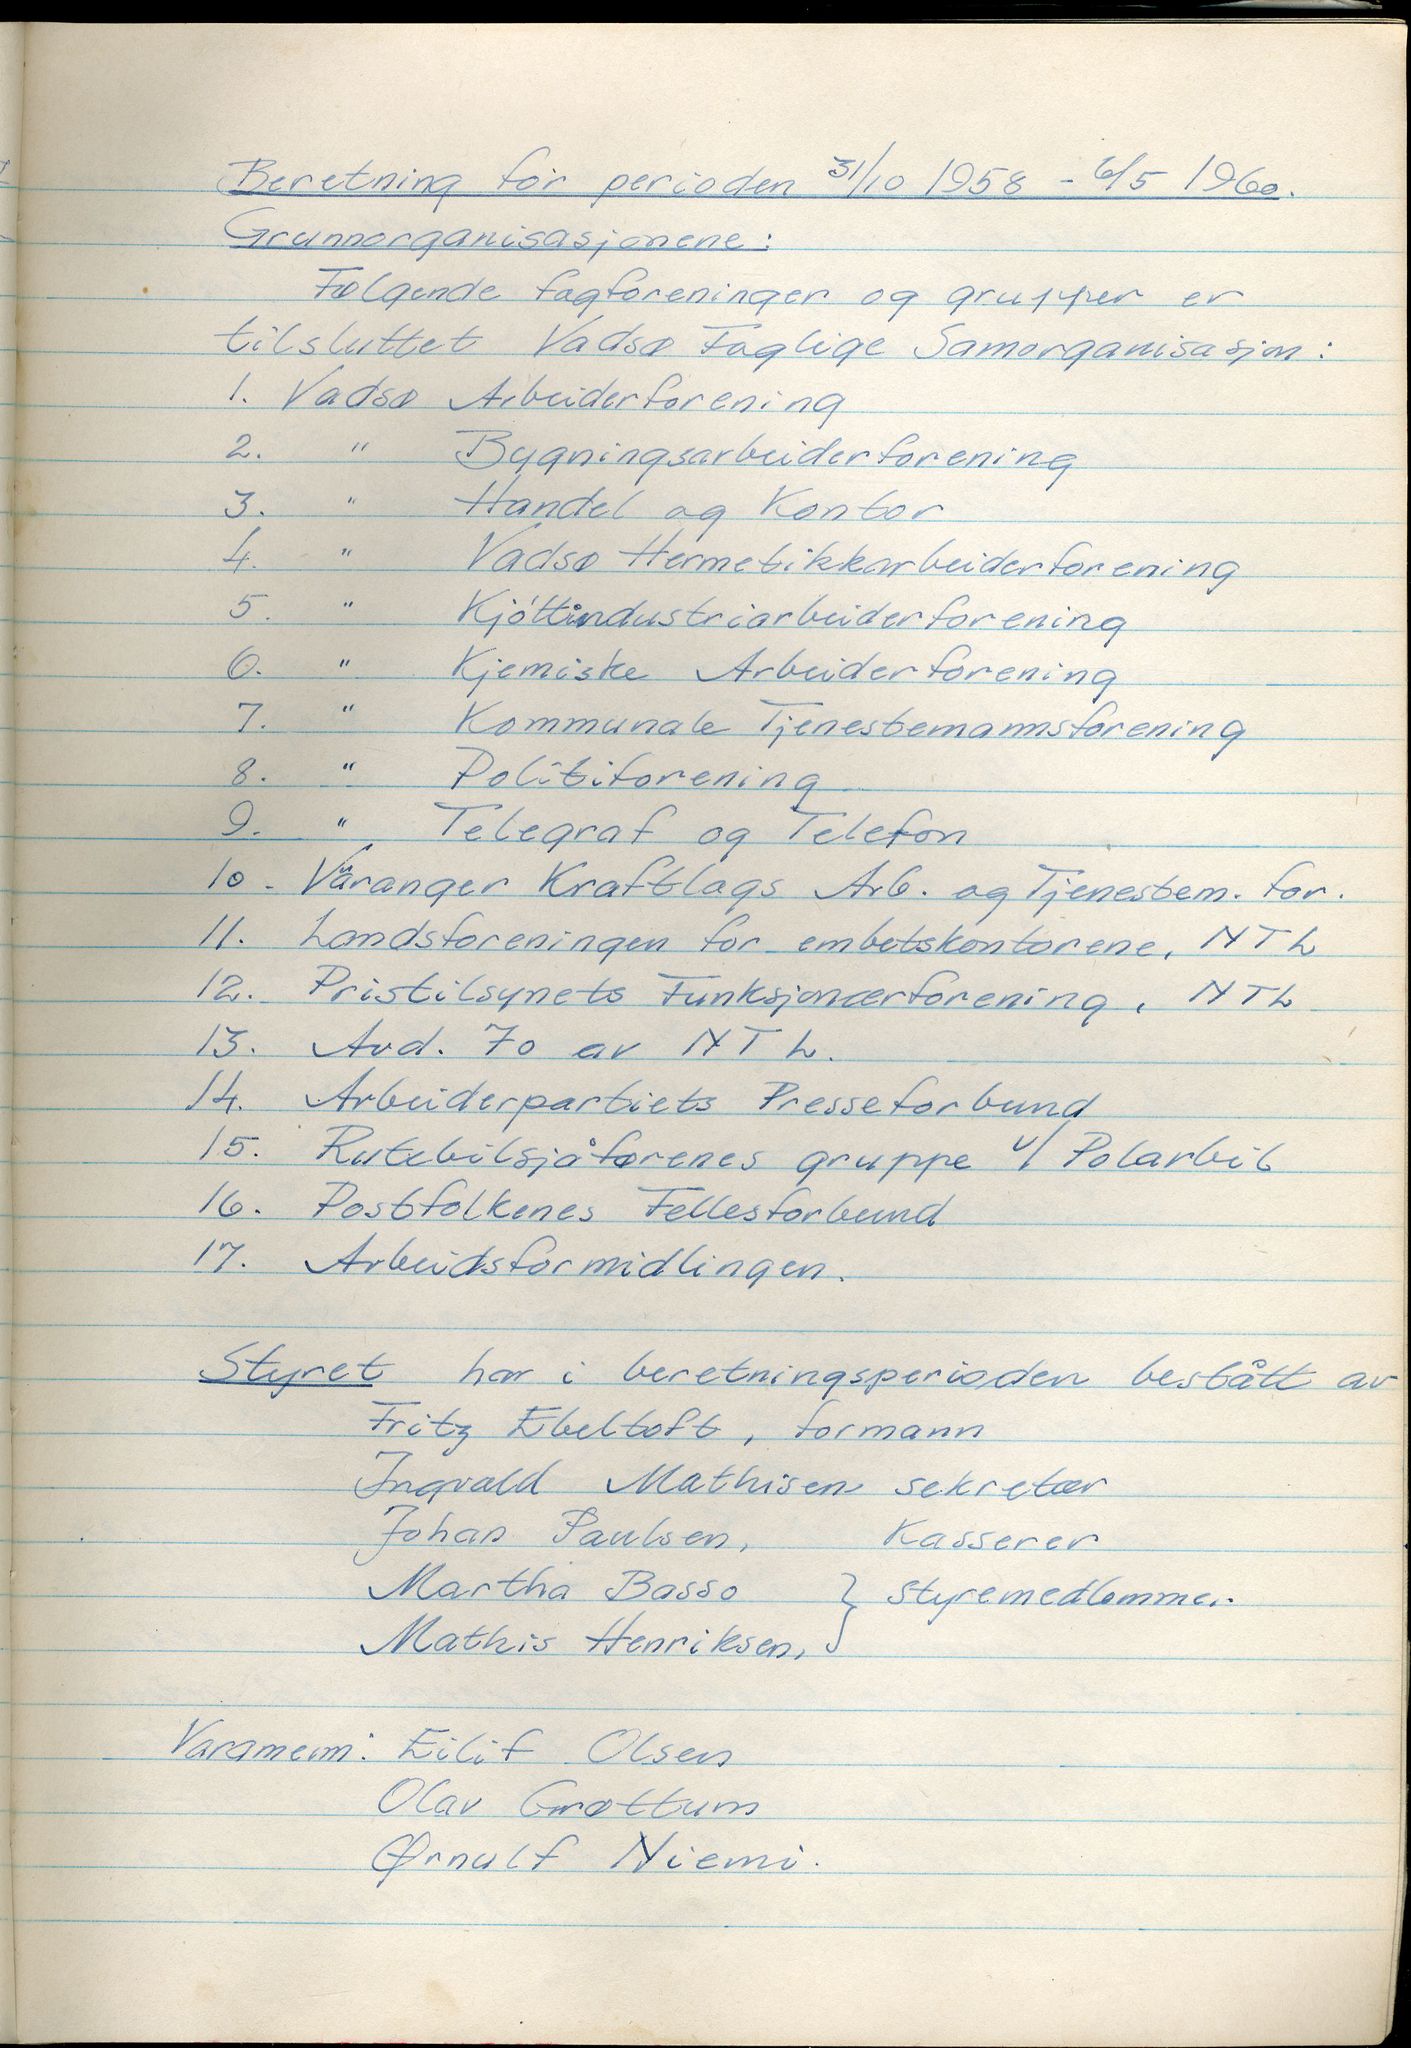 Beretning for perioden 31/10 1958 - 6/5 1960.
Grunnorganisasjonene:
Følgende fagforeninger og grupper er
tilsluttet Vadsø Faglige Samorganisasjon:
1. Vadsø Arbeiderforening
2. " Bygningsarbeiderforening
3. " Handel og Kontor
4. " Vadsø Hermetikkarbeiderforening
5. " Kjøttindustriarbeiderforening
6. " Kjemiske Arbeiderforening
7. " Kommunale Tjenestemannsforening
8. " Politiforening
9. " Telegraf og Telefon
10. Varanger Kraftlags Arb. og Tjenestem. for.
11. Landsforeningen for embetskontorene, NTL
12. Pristilsynets Funksjonærforening, NTL
13. Avd. 70 av NTL.
14. Arbeiderpartiets Presseforbund
15. Rutebilsjåførenes gruppe v/ Polarbil
16. Postfolkenes Fellesforbund
17. Arbeidsformidlingen.
Styret har i beretningsperioden bestått av
Fritz Ebeltoft, formann
Ingvald Mathisen sekretær
Johan Paulsen, Kasserer
Martha Basso } styremedlemmer
Mathis Henriksen,
Varamenn: Eilif Olsen
Olav Grøttum
Ørnulf Niemi.